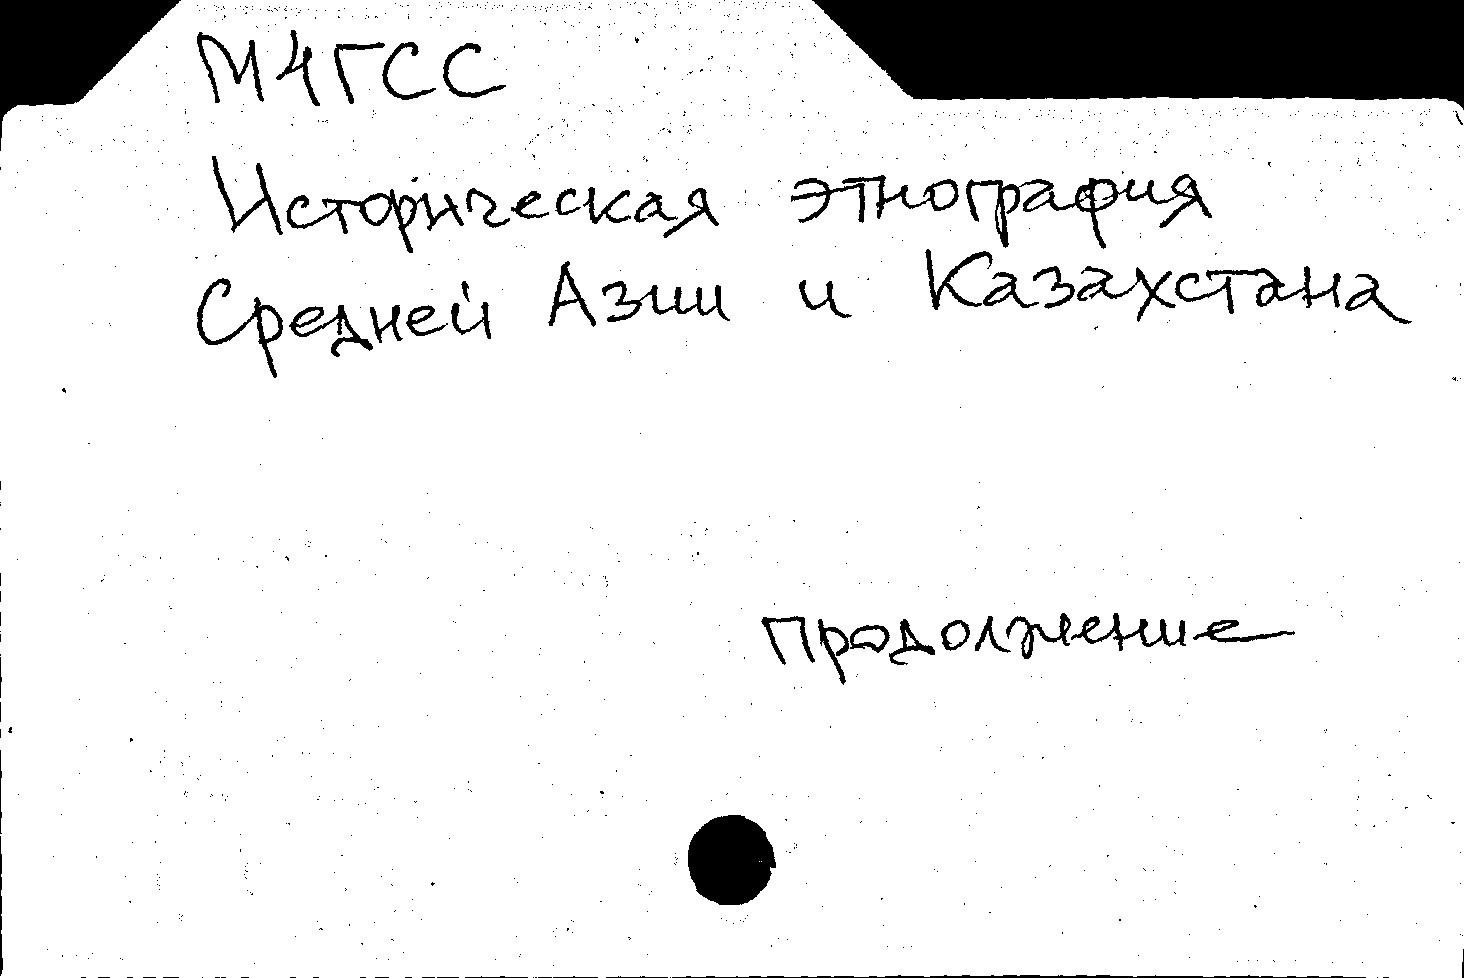 М4ГСС
Историческая этнография
Средней Азии и Казахстана
продолжение